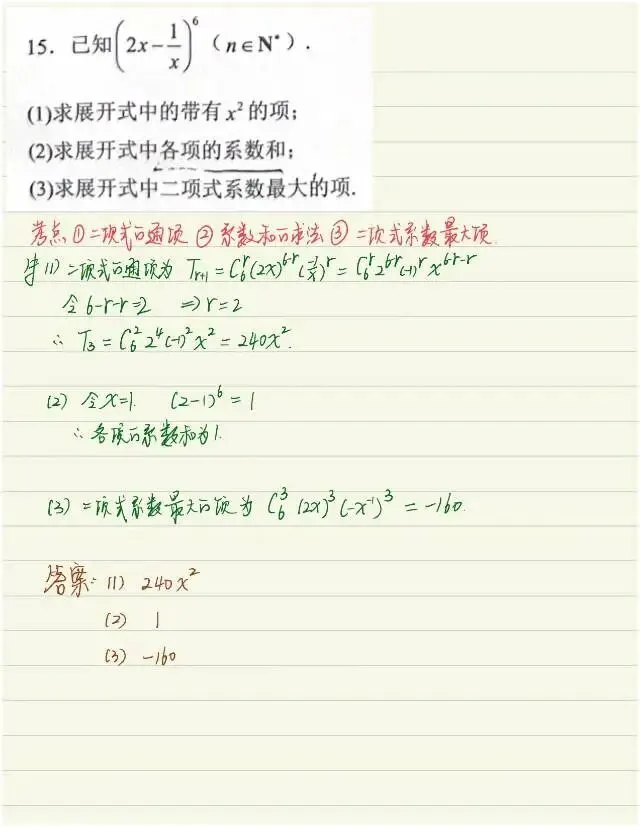 15. 已知(2x-1/x)^6 (n∈N*).
(1)求展开式中的带有 x² 的项;
(2)求展开式中各项的系数和;
(3)求展开式中二项式系数最大的项.
考点 ① 二项式的通项 ② 系数和的求法 ③ 二项式系数最大项
解 (1) 二项式的通项为 T_{r+1} = C_6^r (2x)^{6-r} (-1/x)^r = C_6^r 2^{6-r} (-1)^r x^{6-r-r}
令 6-r-r=2 ⇒ r=2
∴ T_3 = C_6^2 2^4 (-1)^2 x^2 = 240x^2.
(2) 令x=1. (2-1)^6 = 1
∴ 各项的系数和为1.
(3) 二项式系数最大的项为 C_6^3 (2x)^3 (-x^{-1})^3 = -160.
答案: (1) 240x^2
(2) 1
(3) -160